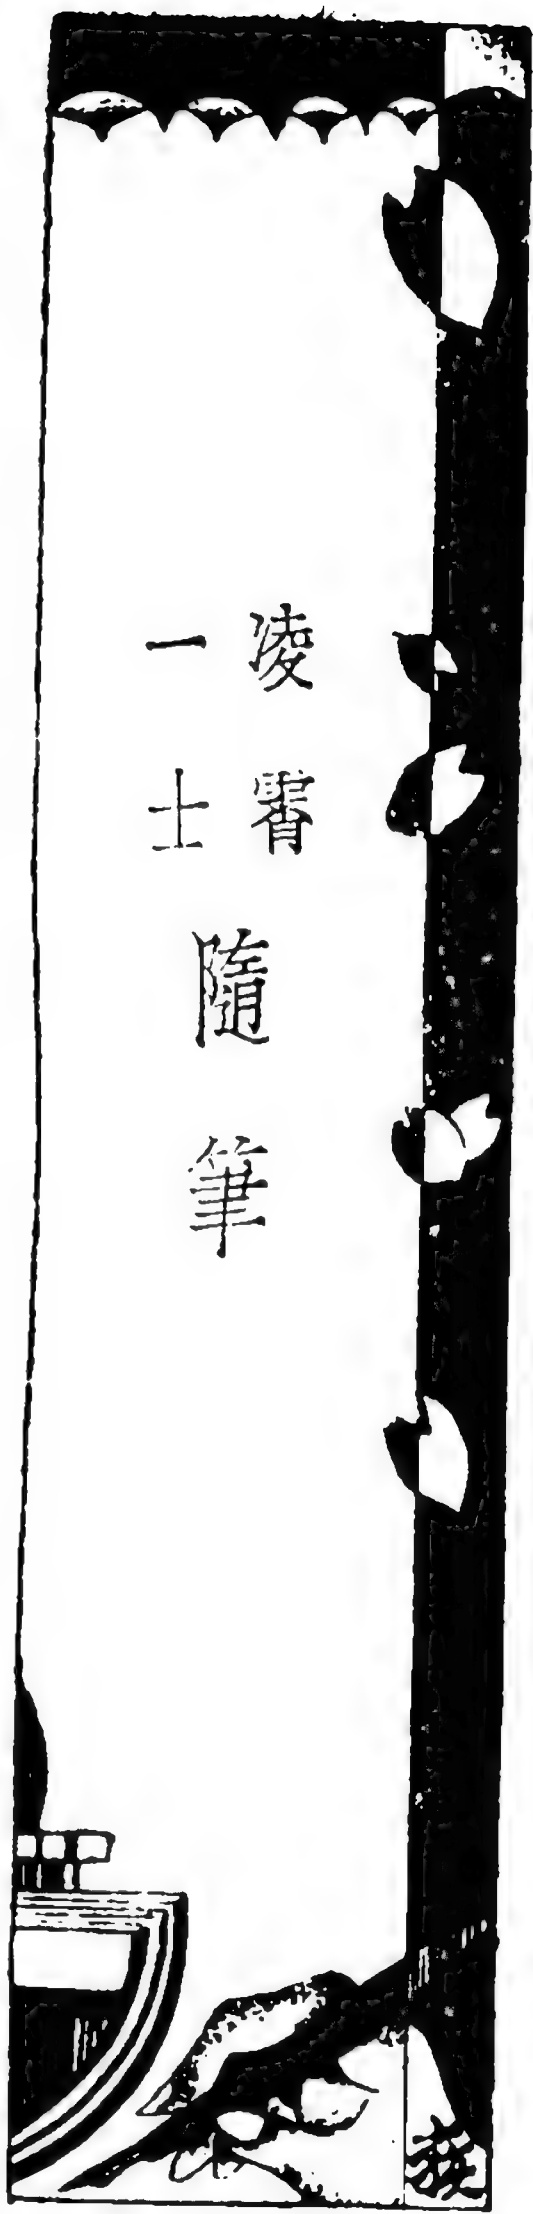 凌霄
一士
隨筆